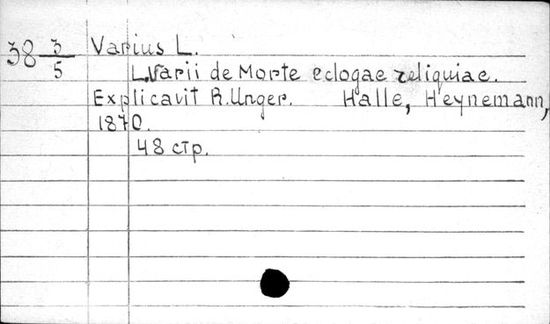 38 3/5 Varius L.
L. Varii de Morte eclogae reliquiae.
Explicavit R. Unger. Halle, Heynemann,
1870.
48 стр.